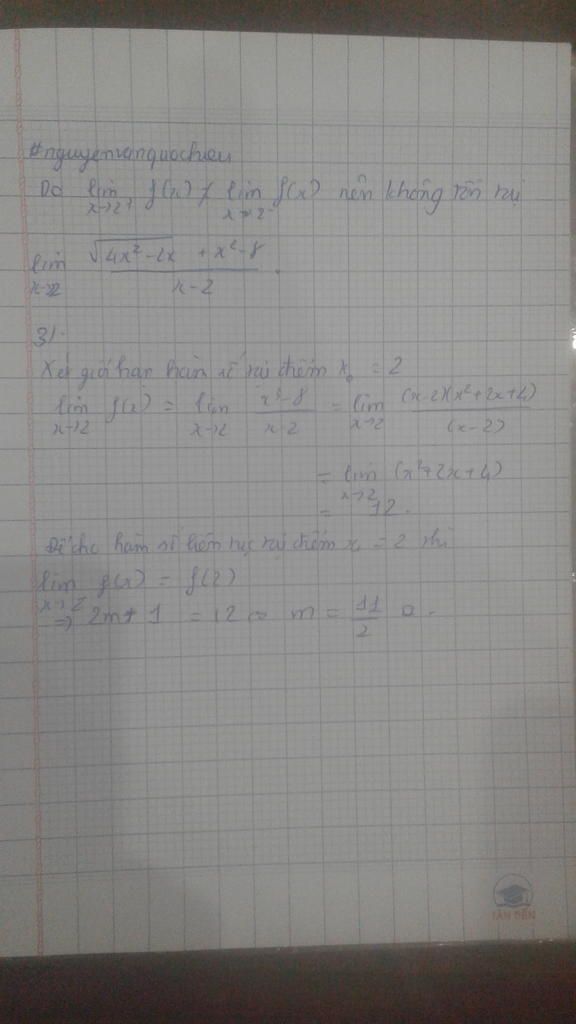 #nguyenvanquochieu
Do lim x→2⁺ f(x) ≠ lim x→2⁻ f(x) nên không tồn tại
lim x→2 (√(4x²-2x) + x²-8)/(x-2).
3/.
Xét giới hạn hàm số tại điểm x₀ = 2
lim x→2 f(x) = lim x→2 (x³-8)/(x-2) = lim x→2 (x-2)(x²+2x+4)/(x-2)
= lim x→2 (x²+2x+4)
= 12.
Để cho hàm số liên tục tại điểm x₀ = 2 thì
lim x→2 f(x) = f(2)
⇒ 2m+1 = 12 ⇔ m = 11/2
TÂN TIẾN